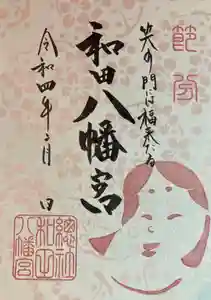 節分
笑う門には福来たる
和田八幡宮
令和四年二月 日
總社
和田
八幡宮